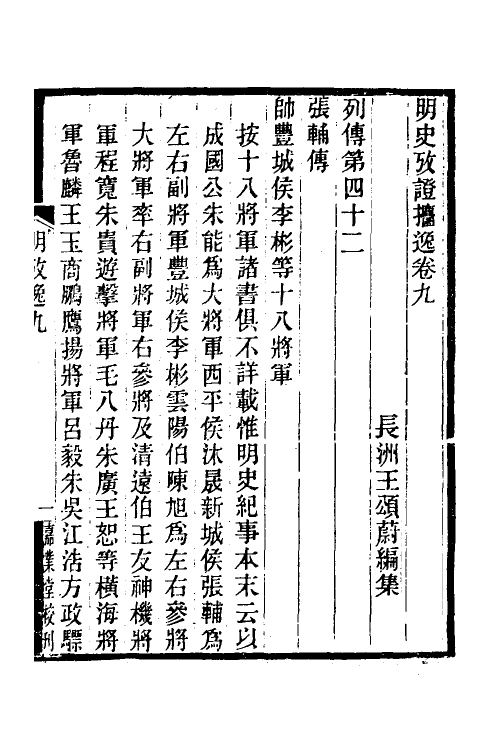 明史攷證攟逸卷九
長洲王頌蔚編集
列傳第四十二
張輔傳
帥豐城侯李彬等十八將軍
按十八將軍諸書俱不詳載惟明史紀事本末云以
成國公朱能爲大將軍西平侯沐晟新城侯張輔爲
左右副將軍豐城侯李彬雲陽伯陳旭爲左右參將
大將軍率右副將軍右參將及清遠伯王友神機將
軍程寬朱貴遊擊將軍毛八丹朱廣王恕等橫海將
軍魯麟王玉商鵬鷹揚將軍呂毅朱吳江浩方政驃
明攷逸九
一
嘉業堂校刊